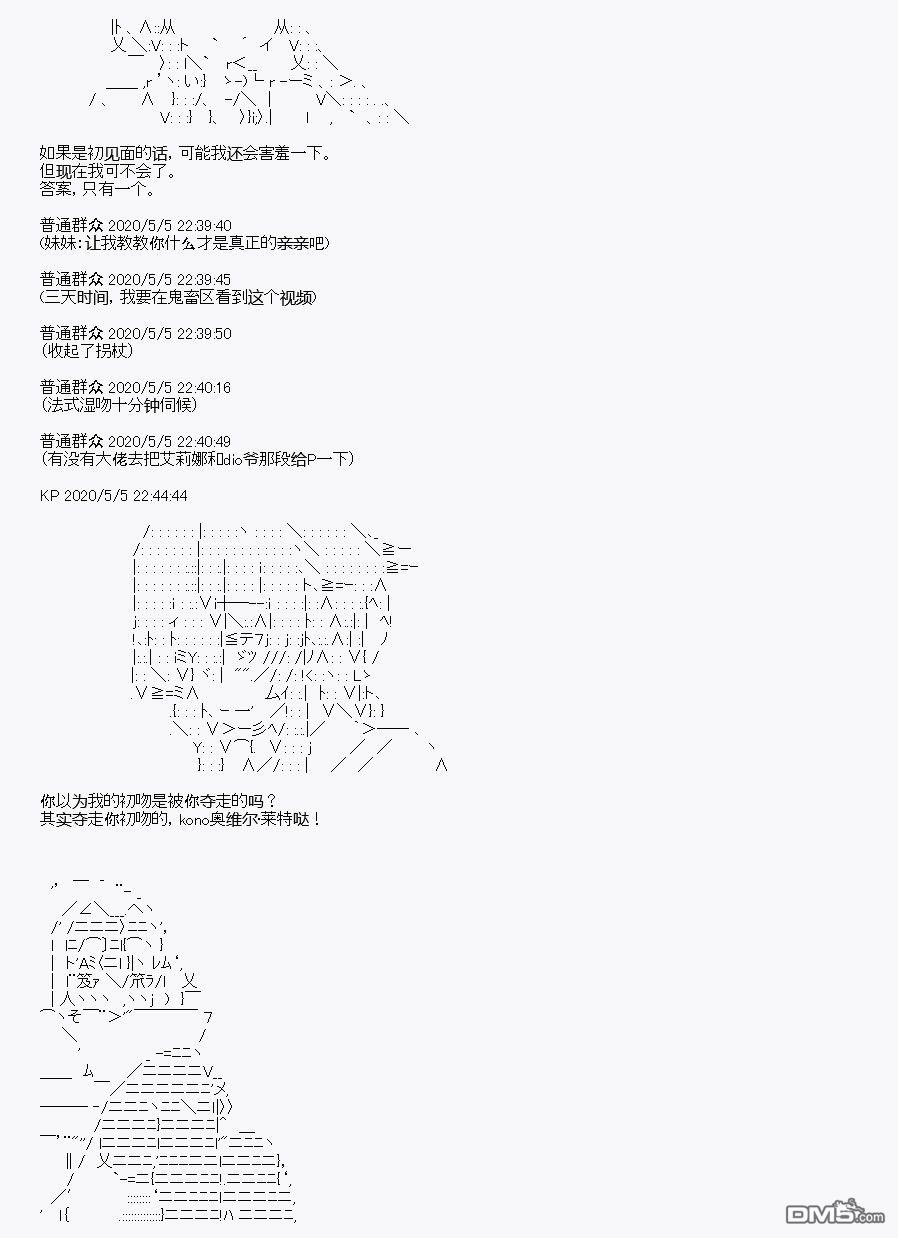 如果是初见面的话，可能我还会害羞一下。
但现在我可不会了。
答案，只有一个。
普通群众 2020/5/5 22:39:40
(妹妹：让我教教你什么才是真正的亲亲吧)
普通群众 2020/5/5 22:39:45
(三天时间，我要在鬼畜区看到这个视频)
普通群众 2020/5/5 22:39:50
(收起了拐杖)
普通群众 2020/5/5 22:40:16
(法式湿吻十分钟伺候)
普通群众 2020/5/5 22:40:49
(有没有大佬去把艾莉娜和dio爷那段给P一下)
KP 2020/5/5 22:44:44
你以为我的初吻是被你夺走的吗？
其实夺走你初吻的，kono奥维尔·莱特哒！
DM5.com